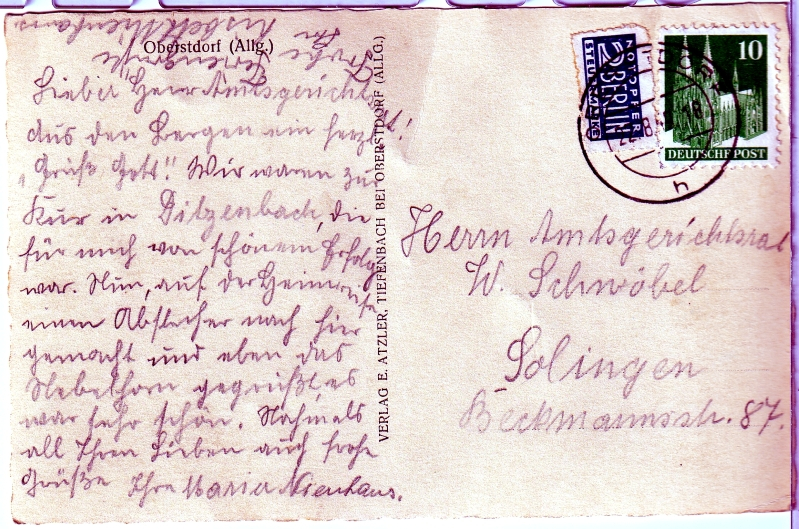 Oberstdorf (Allg.)
Lieber Herr Amtsgerichts
aus den Bergen ein herzl.
"Grüß Gott"! Wir waren zur
Kur in Ditzenbach, die
für mich von schönem Erfolg
war. Nun, auf der Heimreise
einen Abstecher nach hier
gemacht und eben das
Nebelhorn gegrüßt, es
war sehr schön. Nochmals
all Ihren Lieben auch frohe
Grüße Ihre Maria Nienhaus.
Frohe Feriengrüße
Ihr
Nienhaus.
VERLAG E. ATZLER, TIEFENBACH BEI OBERSTDORF (ALLG.)
NOTOPFER
2 BERLIN
STEUERMARKE
10
DEUTSCHE POST
Herrn Amtsgerichtsrat
W. Schwöbel
Solingen
Beckmannsstr. 87.